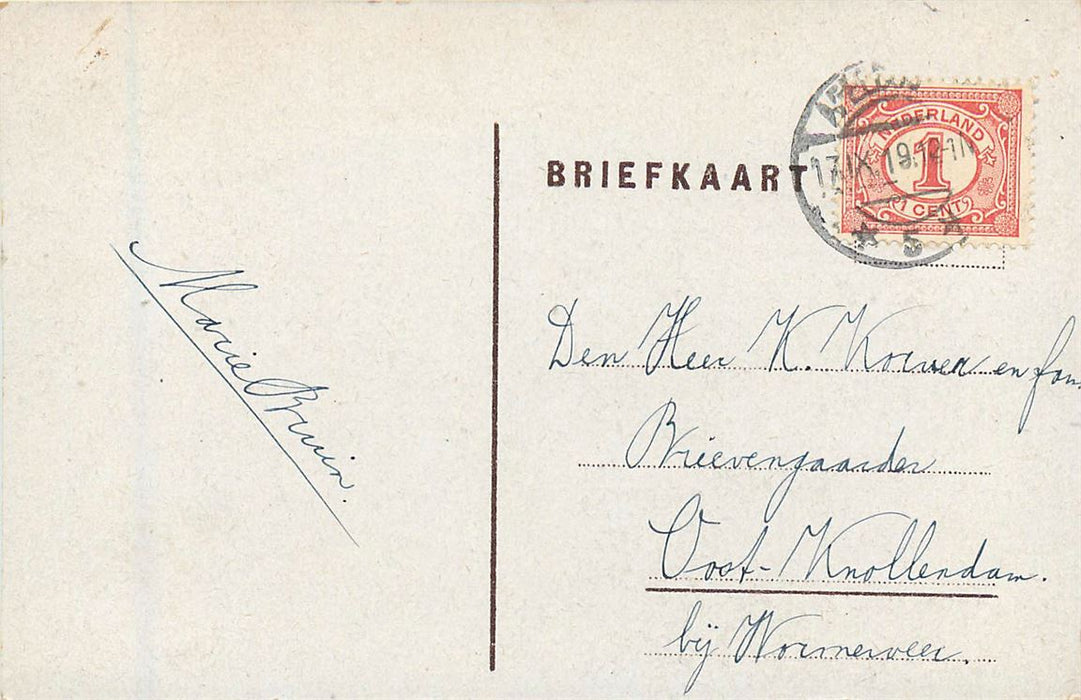 BRIEFKAART
NEDERLAND
1
1 CENT
5
Marie Bruin.
Den Heer K. Korver en fam.
Brievengaarder
Oost-Knollendam.
bij Wormerveer.